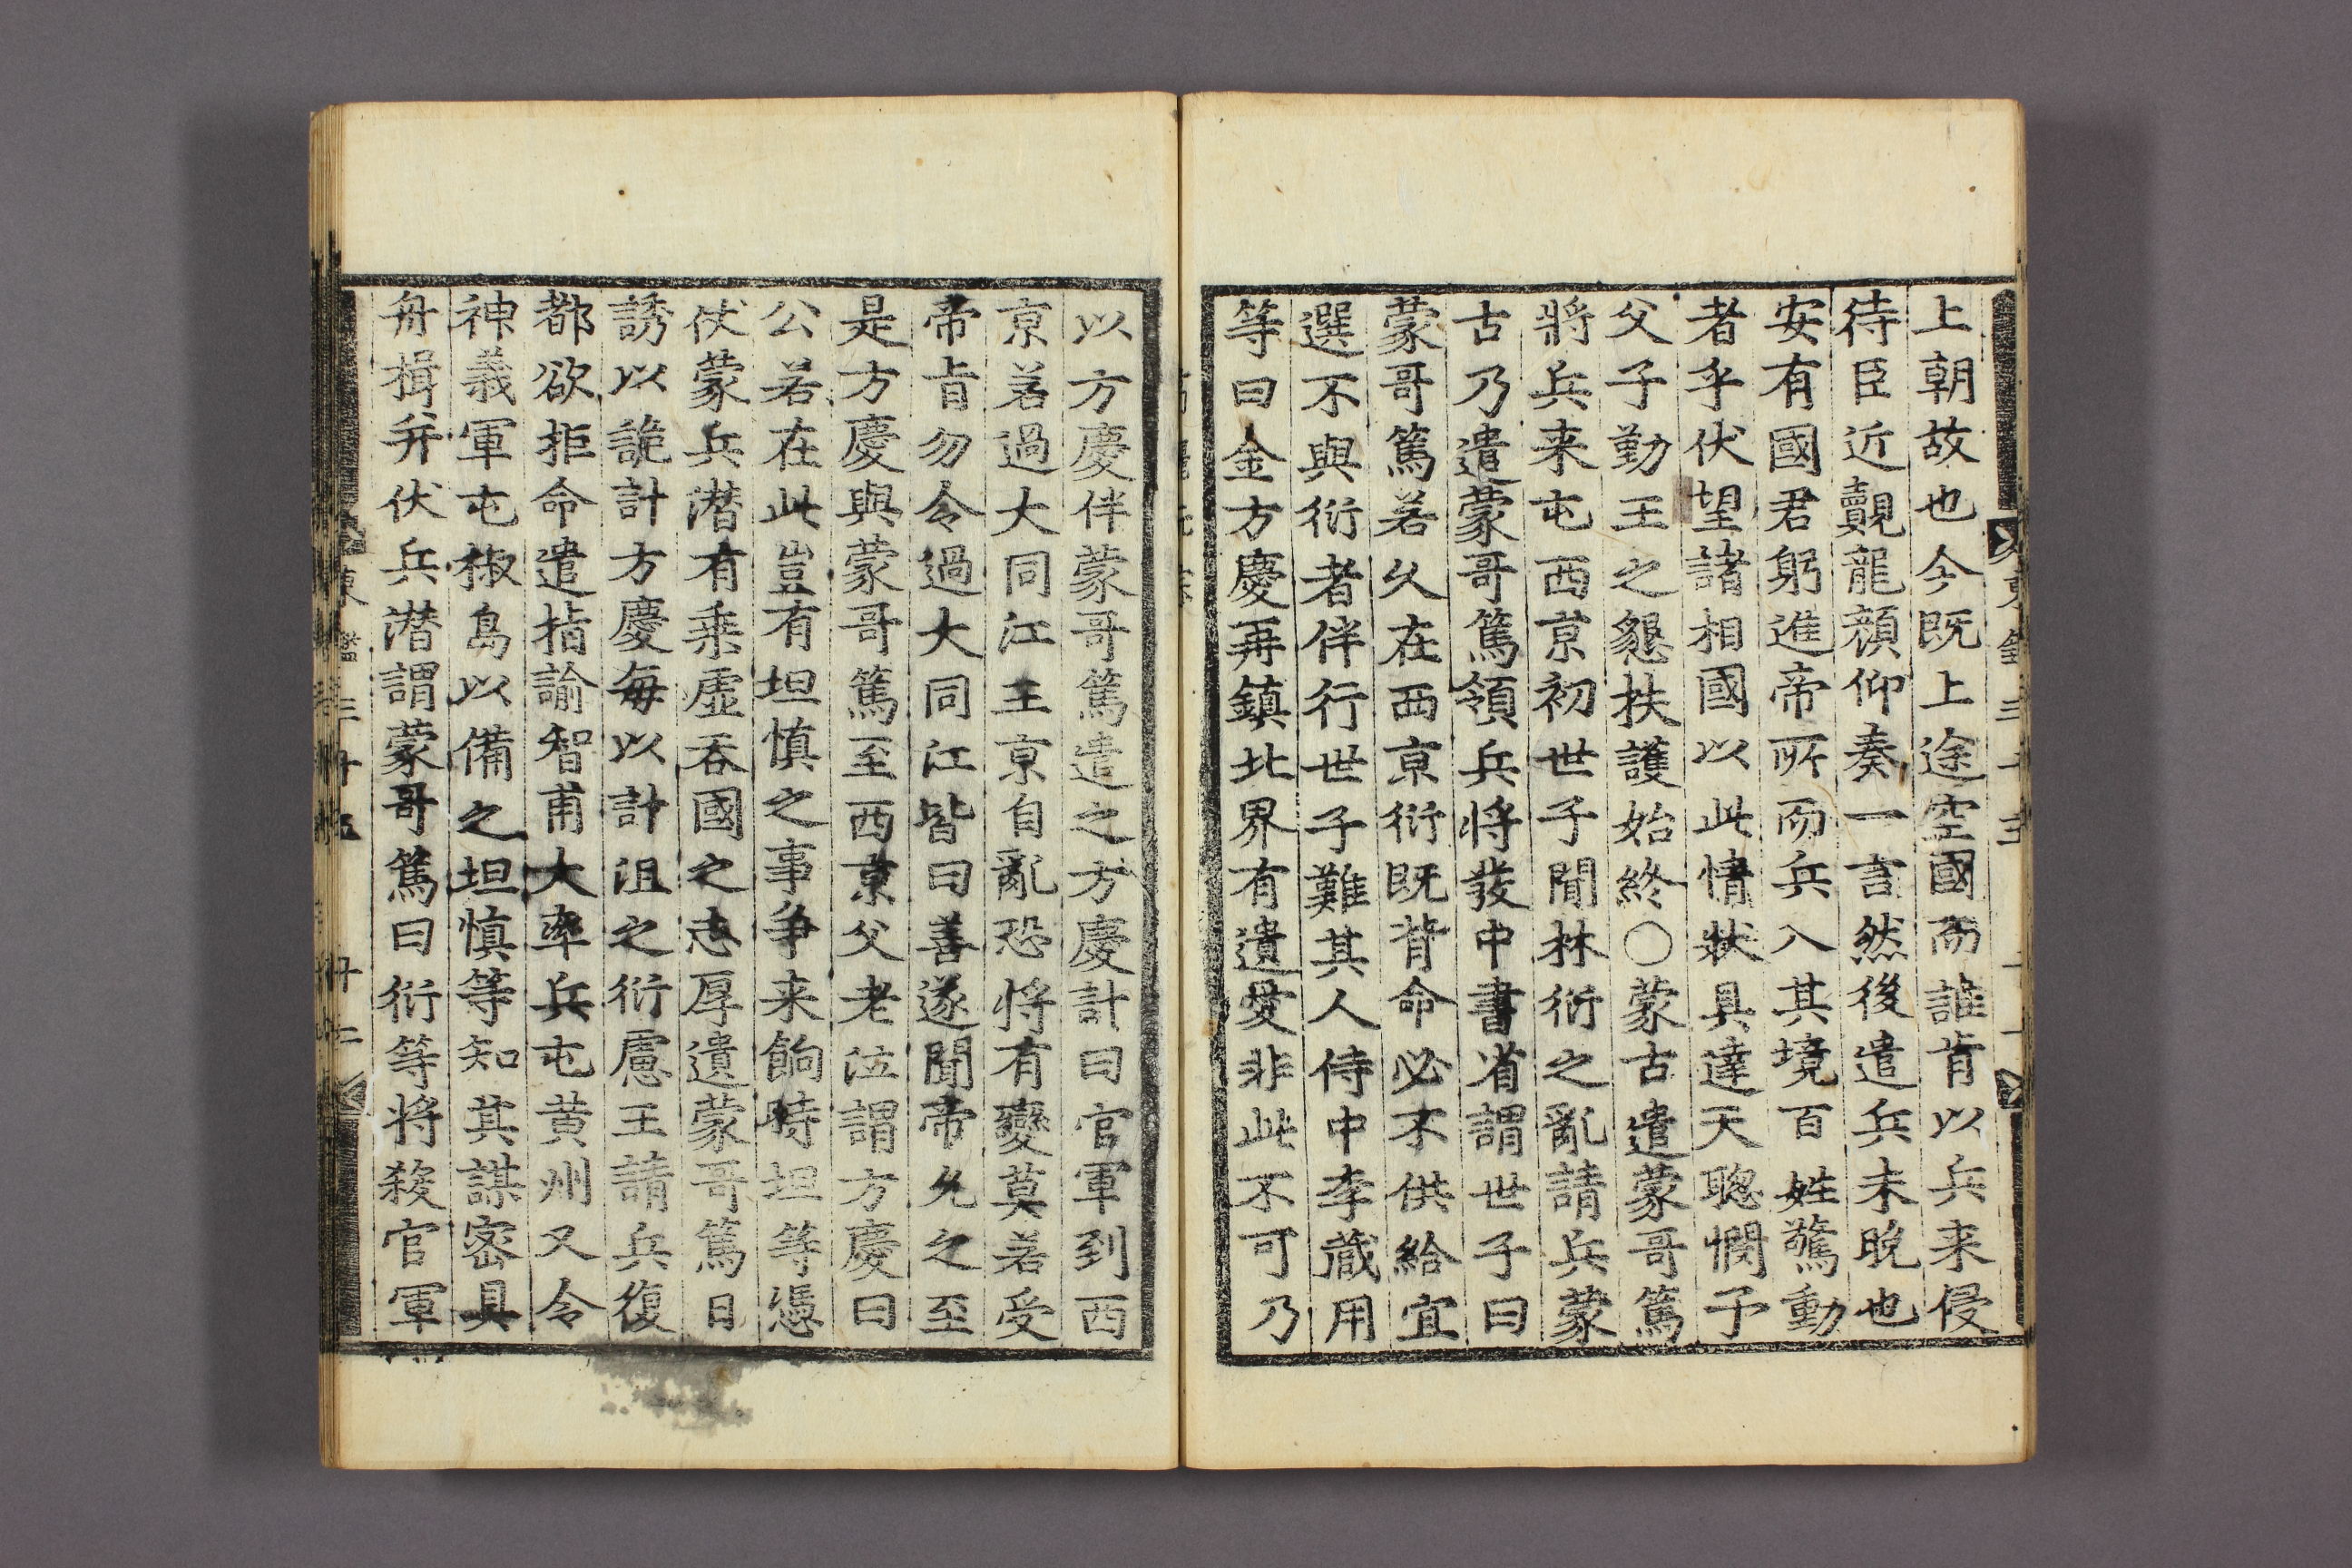 上朝故也今既上途空國而誰肯以兵来侵
待臣近覿龍顔仰奏一言然後遣兵未晚也
安有國君躬進帝所而兵入其境百姓驚動
者乎伏望諸相國以此情狀具達天聰憫予
父子勤王之懇扶護始終〇蒙古遣蒙哥篤
將兵来屯西京初世子聞林衍之亂請兵蒙
古乃遣蒙哥篤領兵將發中書省謂世子曰
蒙哥篤若久在西京衍既背命必不供給宜
選不與衍者伴行世子難其人侍中李蔵用
等曰金方慶再鎮北界有遺愛非此不可乃
以方慶伴蒙哥篤遣之方慶計曰官軍到西
京若過大同江王京自亂恐將有變莫若受
帝㫖勿令過大同江皆曰善遂聞帝允之至
是方慶與蒙哥篤至西京父老泣謂方慶曰
公若在此豈有坦慎之事争来餉時坦等憑
仗蒙兵潜有乗虛吞國之志厚遺蒙哥篤日
誘以詭計方慶每以計沮之衍慮王請兵復
都欲拒命遣指諭智甫大率兵屯黄州又令
神義軍屯椒島以備之坦慎等知其謀密具
舟楫并伏兵潜謂蒙哥篤曰衍等将殺官軍
東鑑 三十五 二十二